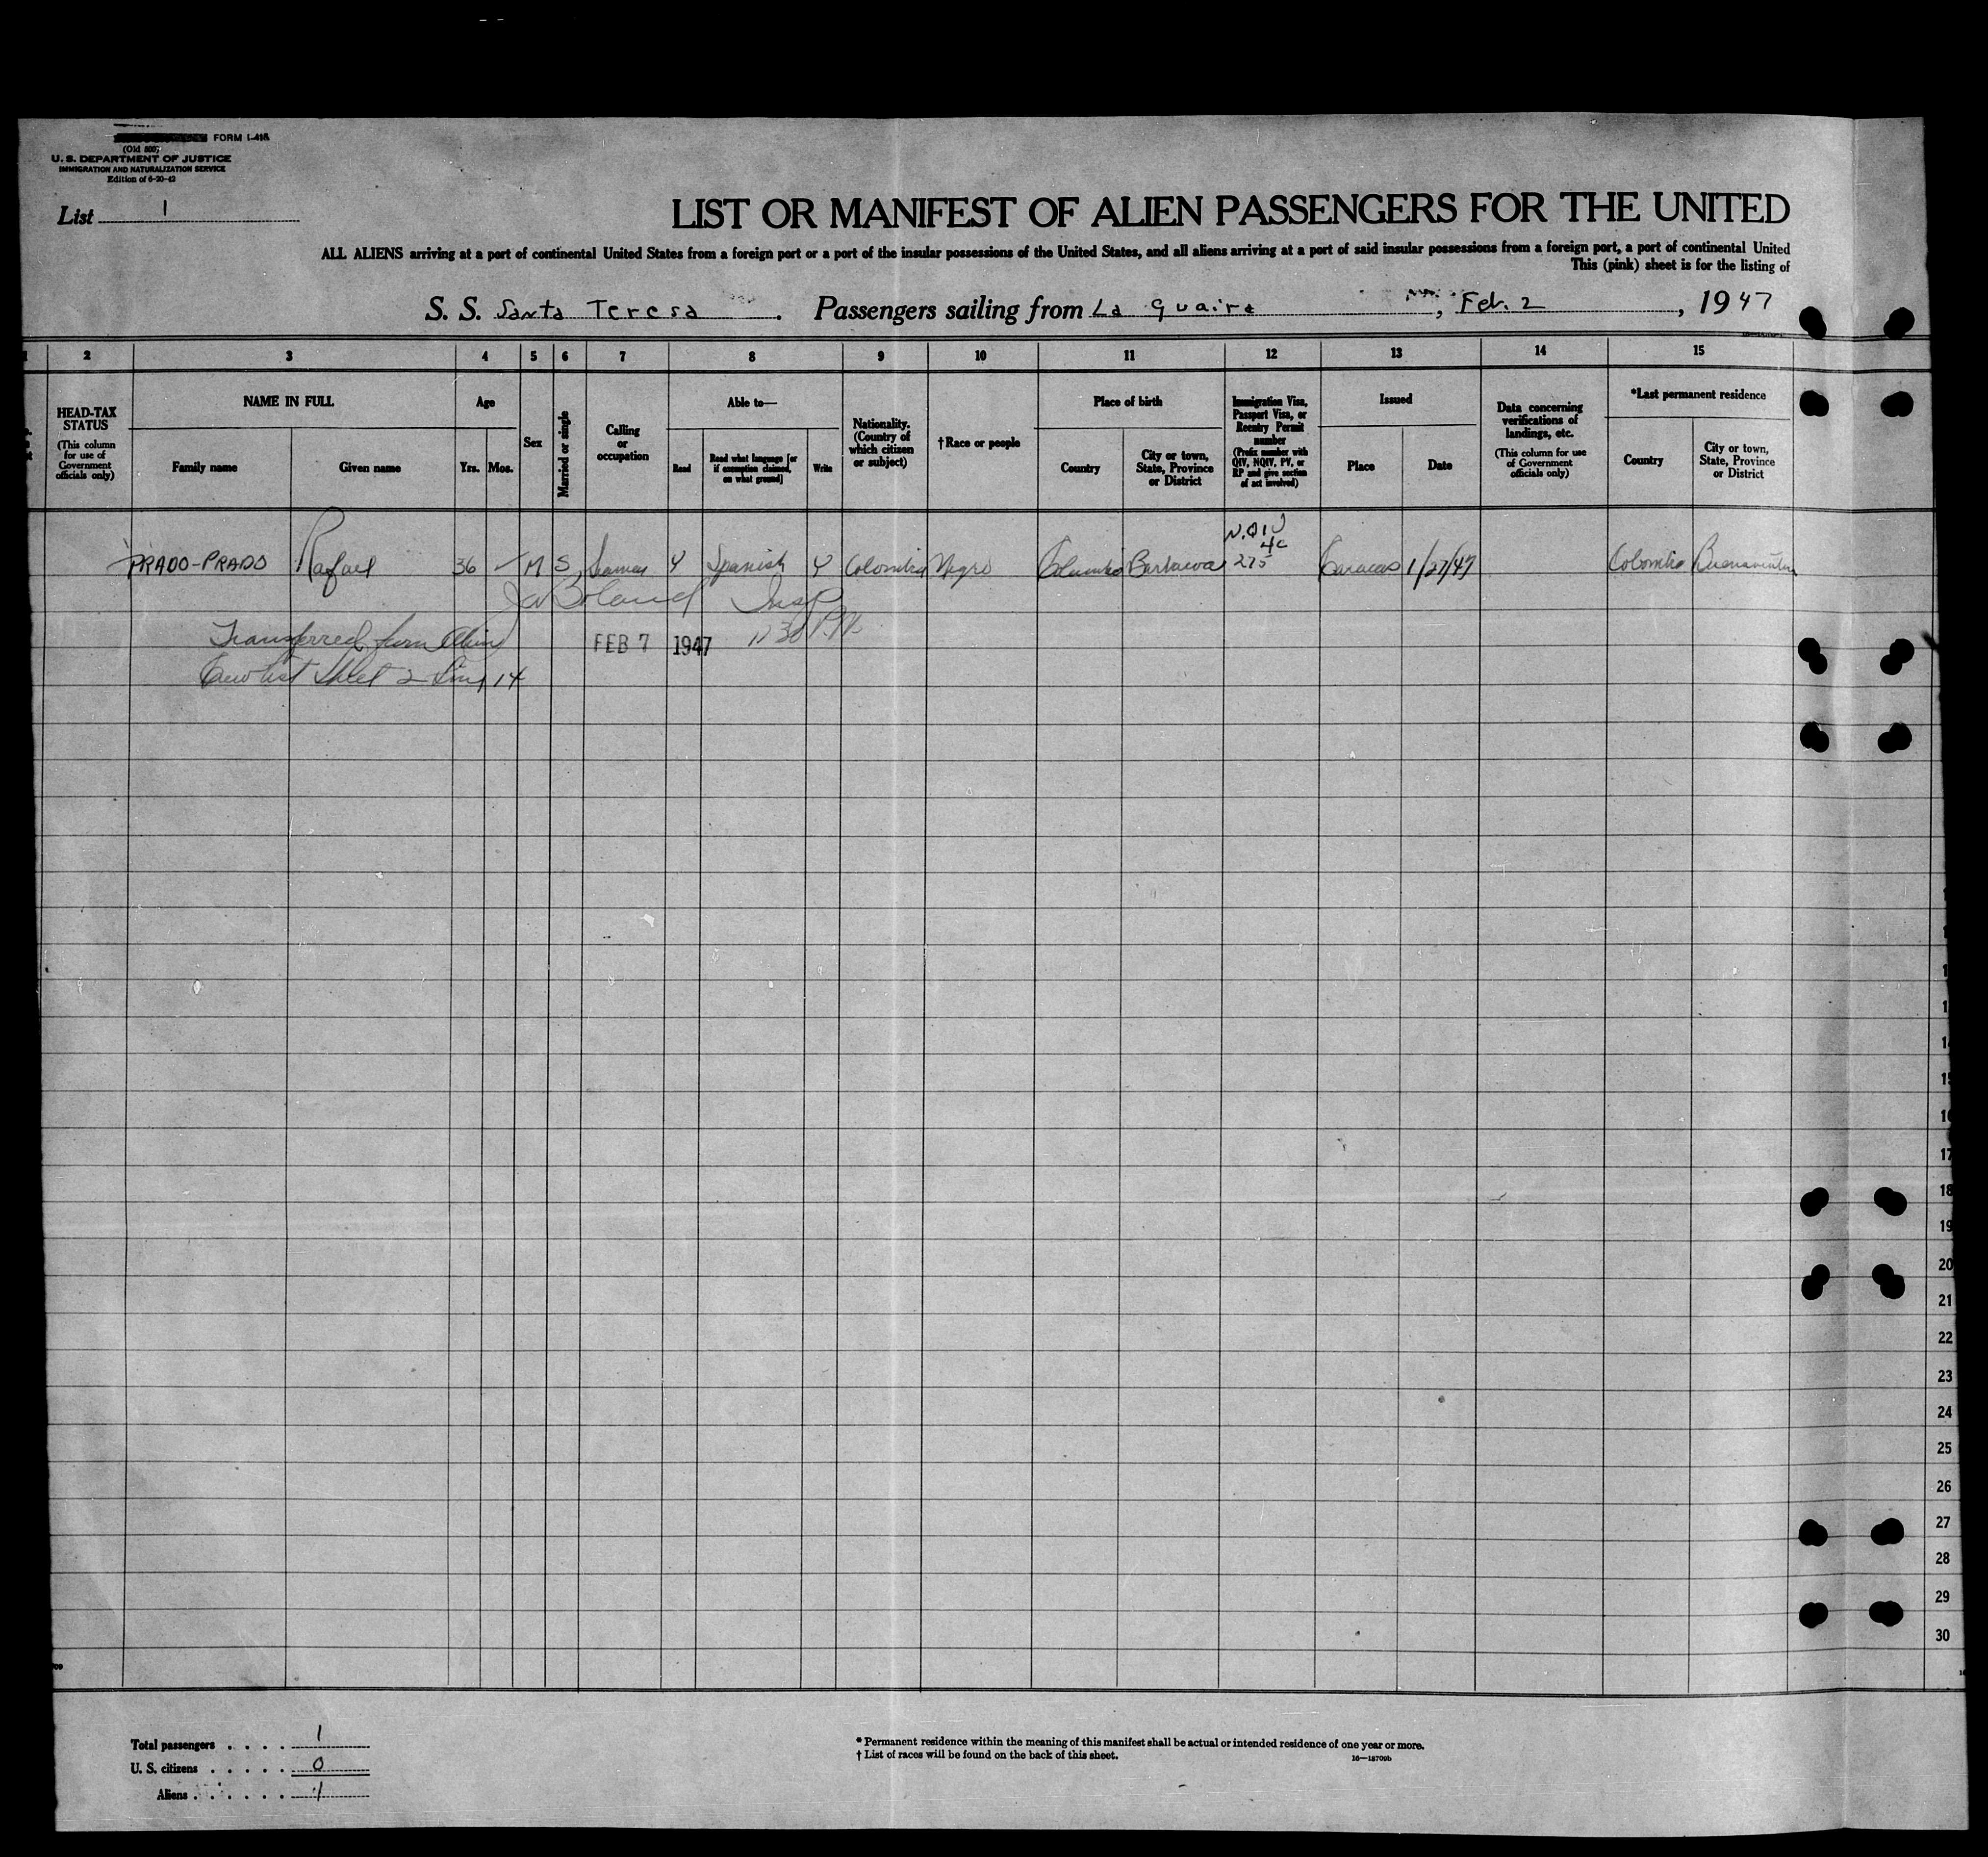 FORM I-415
(Old 500)
U. S. DEPARTMENT OF JUSTICE
IMMIGRATION AND NATURALIZATION SERVICE
Edition of 6-20-42
List 1
LIST OR MANIFEST OF ALIEN PASSENGERS FOR THE UNITED
ALL ALIENS arriving at a port of continental United States from a foreign port or a port of the insular possessions of the United States, and all aliens arriving at a port of said insular possessions from a foreign port, a port of continental United
This (pink) sheet is for the listing of
S. S. Santa Teresa . Passengers sailing from La Guaira , Feb. 2 , 1947
2 3 4 5 6 7 8 9 10 11 12 13 14 15
HEAD-TAX STATUS
(This column for use of Government officials only)
NAME IN FULL
Family name
Given name
Age
Yrs.
Mos.
Sex
Married or single
Calling or occupation
Able to—
Read
Read what language [or if exemption claimed, on what ground]
Write
Nationality. (Country of which citizen or subject)
†Race or people
Place of birth
Country
City or town, State, Province or District
Immigration Visa, Passport Visa, or Reentry Permit number
(Prefix number with QIV, NQIV, PV, or RP and give section of act involved)
Issued
Place
Date
Data concerning verifications of landings, etc.
(This column for use of Government officials only)
*Last permanent residence
Country
City or town, State, Province or District
N.Q I V
4c
PRADO-PRADO Rafael 36 M S Seaman Y Spanish Y Colombia Negro Columbia 275 Caracas 1/27/47 Colombia Buenaventura
Boland Insp
Transferred from Alien FEB 7 1947 11 30 P.M.
Crew list Sheet 2 Line 14
14
15
16
17
18
19
20
21
22
23
24
25
26
27
28
29
30
Total passengers . . . . 1
U. S. citizens . . . . . 0
Aliens . . . . . . 1
* Permanent residence within the meaning of this manifest shall be actual or intended residence of one year or more.
† List of races will be found on the back of this sheet.
16—18709b